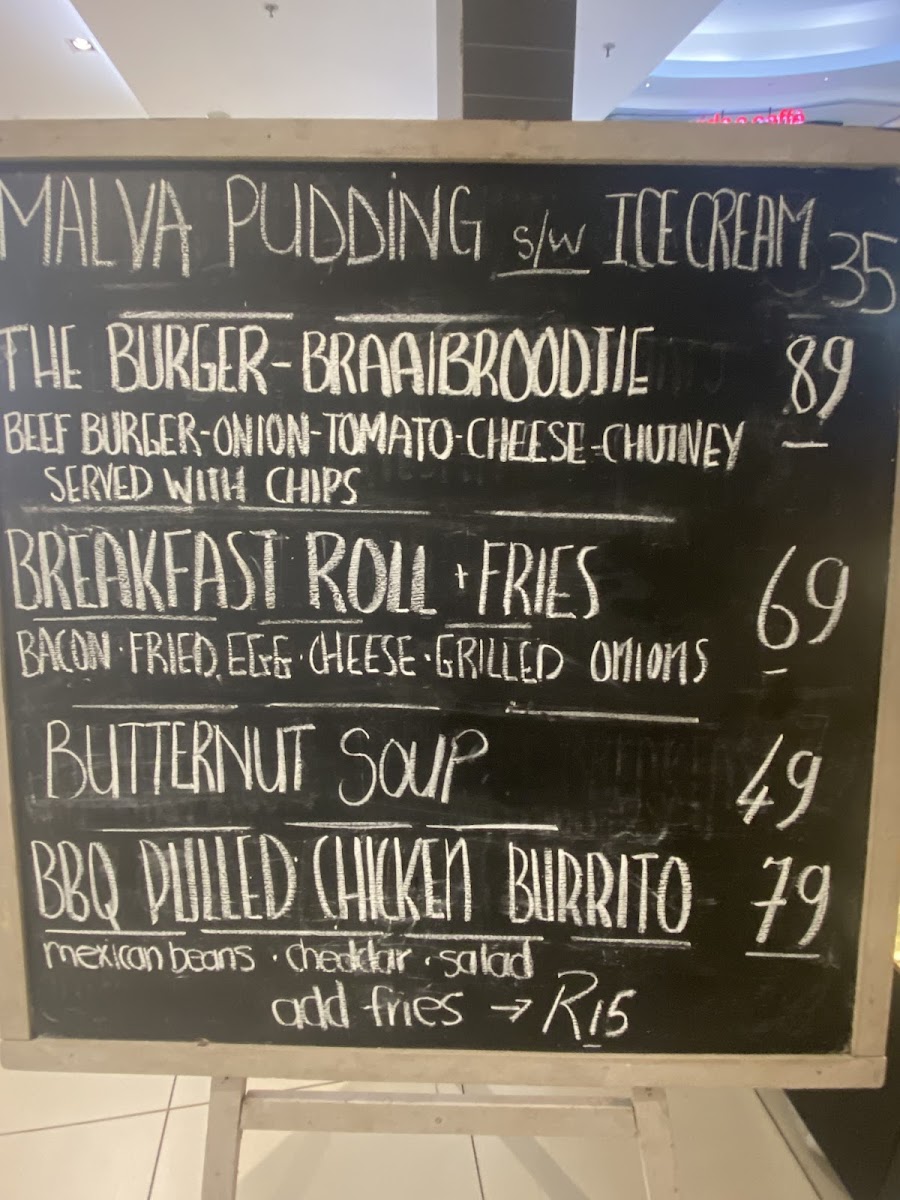 MALVA PUDDING s/w ICE CREAM 35
THE BURGER-BRAAIBROODJIE 89
BEEF BURGER-ONION-TOMATO-CHEESE-CHUTNEY
SERVED WITH CHIPS
BREAKFAST ROLL + FRIES 69
BACON · FRIED EGG · CHEESE · GRILLED ONIONS
BUTTERNUT SOUP 49
BBQ PULLED CHICKEN BURRITO 79
mexican beans · cheddar · salad
add fries → R15